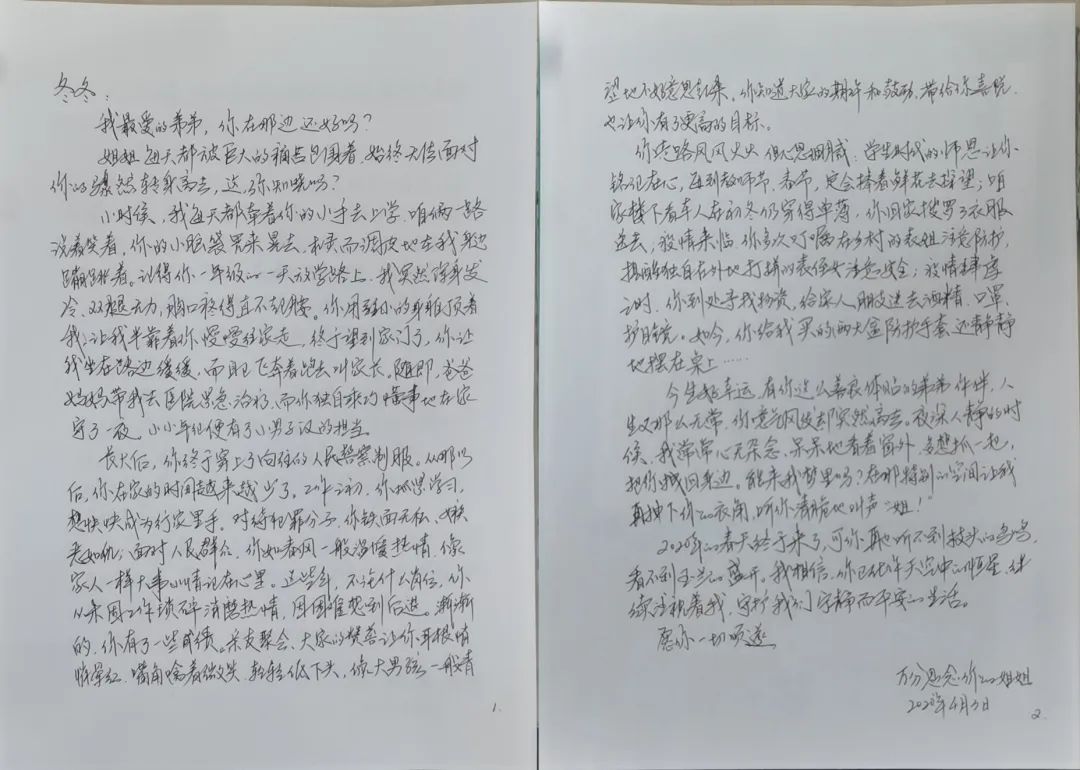 冬冬：
我最爱的弟弟，你在那边还好吗？
姐姐每天都被巨大的痛苦包围着，始终无法面对
你的骤然转身离去，这，你知晓吗？
小时候，我每天都牵着你的小手去上学，咱俩一路
说着笑着，你的小脑袋晃来晃去，机灵而调皮地在我身边
蹦跳着。记得你一年级的一天放学路上，我突然浑身发
冷、双腿无力，胸口疼得直不起腰。你用弱小的身躯顶着
我，让我半靠着你慢慢往家走，终于望到家门了，你让
我坐在路边缓缓，而自己飞奔着跑去叫家长。随即，爸爸
妈妈带我去医院紧急治疗，而你独自乖巧懂事地在家
守了一夜。小小年纪便有了小男子汉的担当。
长大后，你终于穿上了向往的人民警察制服。从那以
后，你在家的时间越来越少了。工作之初，你抓紧学习，
想快快成为行家里手。对待犯罪分子，你铁面无私、嫉
恶如仇；面对人民群众，你如春风一般温暖热情，像
家人一样大事小情记在心里。这些年，不论什么岗位，你
从未因工作琐碎消磨热情，因困难想到后退。渐渐
的，你有了一些成绩。亲友聚会，大家的赞荅让你耳根情
悄晕红，嘴角噙着微笑，轻轻低下头，像大男孩一般青
1.
望地不好意思起来，你知道大家的期许和鼓励，带给你喜悦，
也让你有了更高的目标。
你走路风风火火，但心思细腻：学生时代的师恩让你
铭记在心，每到教师节、春节，定会捧着鲜花去探望；咱
家楼下看车人在初冬仍穿得单薄，你回家搜罗了衣服
送去；疫情来临，你多次叮嘱在乡村的表姐注意防护，
提醒独自在外地打拼的表侄女注意安全；疫情肆虐
之时，你到处寻找物资，给家人朋友送去酒精、口罩、
护目镜。如今，你给我买的两大盒防护手套还静静
地摆在桌上……
今生好幸运，有你这么善良体贴的弟弟作伴，人
生又那么无常，你意气风发却突然离去。夜深人静的时
候，我常常心无杂念，呆呆地看着窗外，多想抓一把，
把你拽回身边。能来我梦里吗？在那特别的空间让我
再拽下你的衣角，听你清脆地叫声“姐！”
2020年的春天终于来了，可你再也听不到枝头的鸟鸣，
看不到玉兰的盛开。我相信，你已化作天空中的恒星，继
续注视着我，守护我们宁静而平安的生活。
愿你一切顺遂
万分思念你的姐姐
2020年4月3日
2.